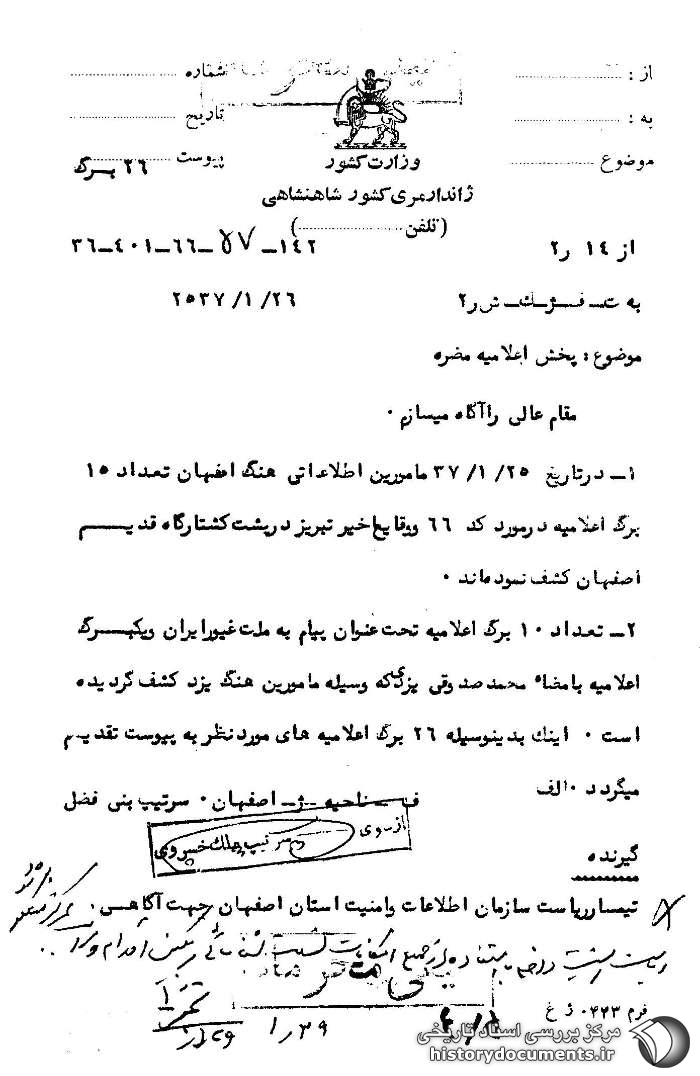 از :
به :
موضوع
شماره
تاریخ
پیوست ۲۶ برگ
وزارت کشور
ژاندارمری کشور شاهنشاهی
(تلفن )
از ۱۴ ر۲
۱۴۲-۵۷-۶۶-۴۰۱-۳۶
به ت-ف-ژ-ك-ش ر۲
۲۵۳۷/۱/۲۶
موضوع : پخش اعلامیه مضره
مقام عالی را آگاه میسازم ۰
۱- در تاریخ ۳۷/۱/۲۵ مامورین اطلاعاتی هنگ اصفهان تعداد ۱۵
برگ اعلامیه در مورد کد ۶۶ و وقایع اخیر تبریز در پشت کشتارگاه قدیم
اصفهان کشف نموده‌اند ۰
۲- تعداد ۱۰ برگ اعلامیه تحت عنوان پیام به ملت غیور ایران و یکبرگ
اعلامیه با مضاء محمد صدوقی یزدی که وسیله مامورین هنگ یزد کشف گردیده
است ۰ اینك بدینوسیله ۲۶ برگ اعلامیه های مورد نظر به پیوست تقدیم
میگردد ۰ الف
ف- ناحیه - ژ- اصفهان ۰ سرتیپ بنی فضل
از سوی
سرتیپ ملك خسروی
گیرنده
تیمسار ریاست سازمان اطلاعات و امنیت استان اصفهان جهت آگاهی ۰
فرم ۰۴۲۳ ژ غ
۱ر۲۹
مرکز بررسی اسناد تاریخی
historydocuments.ir